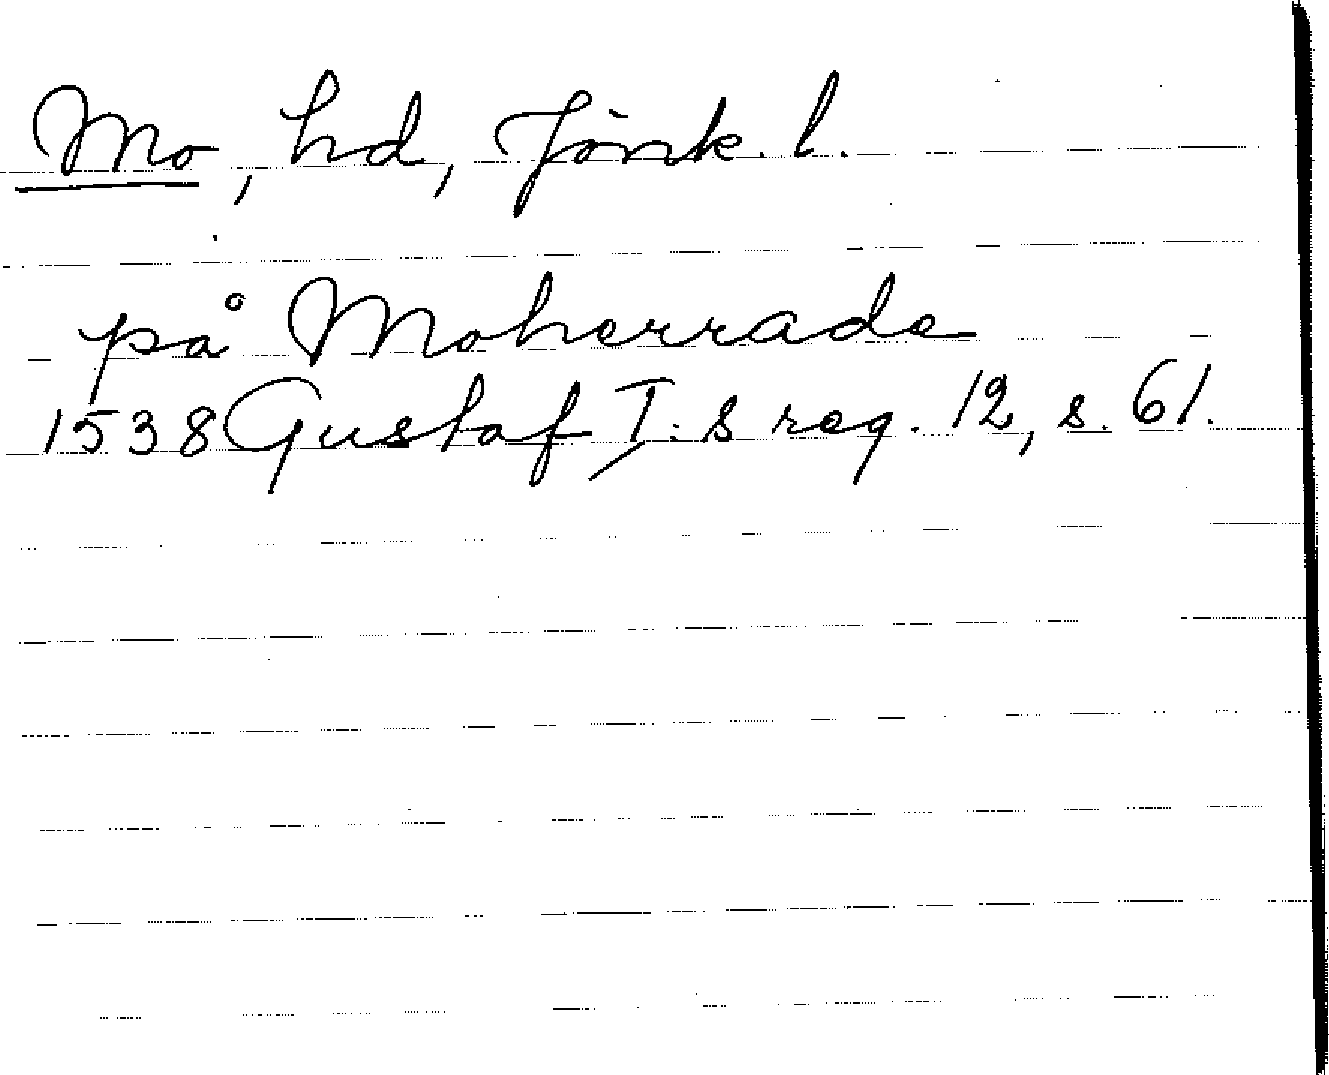 Mo, hd, Jönk. l.
på Moherrade
1538 Gustaf I:s reg. 12, s. 61.